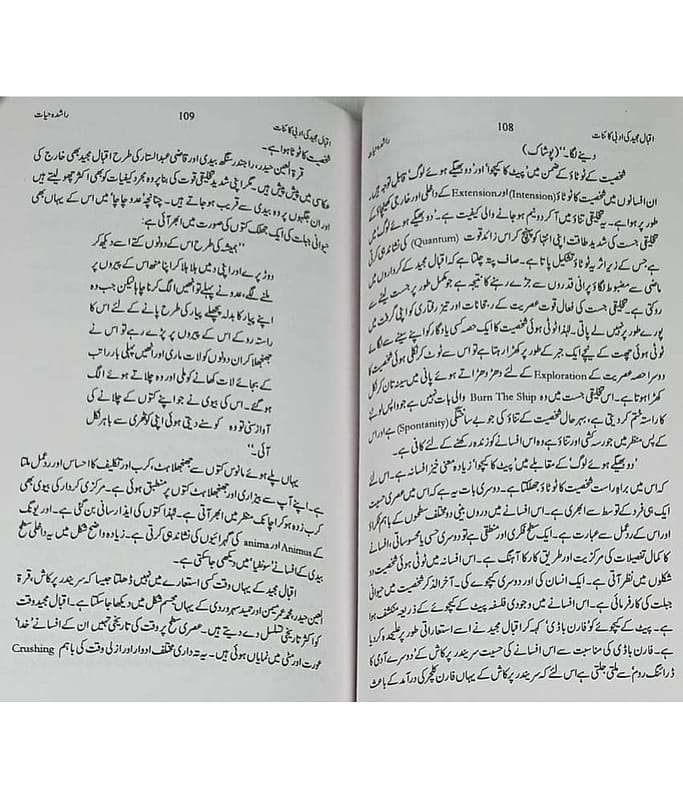 اقبال مجید کی ادبی کائنات 108 راشدہ حیات
دینے لگا۔" (پوشاک)
شخصیت کے ٹوٹاؤ کے ضمن میں 'پیٹ کا کیچوا' اور 'دو بھیگے ہوئے لوگ' قابل توجہ ہیں۔
ان افسانوں میں شخصیت کا ٹوٹاؤ (Intension) اور Extension کے داخلی اور خارجی کھینچاؤ کے
طور پر ہوا ہے۔ یہ تخلیقی تناؤ میں آ کر دو نیم ہو جانے والی کیفیت ہے۔ 'دو بھیگے ہوئے لوگ' میں
تخلیقی جست کی شدید طاقت اپنی انتہا کو پہنچ کر اس زائد قوت (Quantum) کی نشاندہی کرتی
ہے جس کے زیر اثر یہ ٹوٹاؤ تشکیل پاتا ہے۔ صاف پتہ چلتا ہے کہ اقبال مجید کے کرداروں میں
ماضی سے مضبوط لگاؤ پرانی قدروں سے جڑے رہنے کا نتیجہ ہے جو مکمل طور پر جست لینے سے
روکتی ہے۔ تخلیقی جست کی فعال قوت عصریت کے رجحانات اور تیز رفتاری کو اپنی گرفت میں
پورے طور پر نہیں لے پاتی۔ لہٰذا ٹوٹی ہوئی شخصیت کا ایک حصہ کسی یادگار کو اپنے سینے سے لگائے
ٹوٹی ہوئی چھت کے نیچے ایک جبر کے طور پر کھڑا رہتا ہے تو اس سے ٹوٹ کر نکلی ہوئی شخصیت کا
دوسرا حصہ عصریت کے Exploration کے لئے دھڑدھڑاتے ہوئے پانی میں سینہ تان کر نکل
کھڑا ہوتا ہے۔ اس تخلیقی جست میں وہ Burn The Ship والی بات نہیں ہے جو واپس لوٹنے
کا راستہ ختم کر دیتی ہے، بہر حال شخصیت کے تناؤ کی جو بے ساختگی (Spontanity) ہے اور اس
کے پس منظر میں جو رسہ کشی اور تناؤ ہے وہ اس افسانے کو زندہ رکھنے کے لئے کافی ہے۔
'دو بھیگے ہوئے لوگ' کے مقابلے میں 'پیٹ کا کیچوا' زیادہ معنی خیز افسانہ ہے۔ اس لئے
کہ اس میں براہ راست شخصیت کا ٹوٹاؤ جھلکتا ہے۔ دوسری بات یہ ہے کہ اس میں عصری حسیت
ایک ہی فرد کے توسط سے ابھری ہے۔ اس افسانے میں دروں بنی دو مختلف سطحوں کے باہم ٹکراؤ
اور اس کے ردعمل سے عبارت ہے۔ ایک سطح فکری اور منطقی ہے تو دوسری حسی یا محسوساتی، افسانے
کا کمال تفصیلات کی مرکزیت اور طریق کار کا آہنگ ہے۔ اس افسانہ میں ٹوٹی ہوئی شخصیت دو
شکلوں میں نظر آتی ہے۔ ایک انسان کی اور دوسری کیچوے کی۔ آخر الذکر شخصیت میں حیوانی
جبلت کی کارفرمائی ہے۔ اس افسانے میں وجودی فلسفہ پیٹ کے کیچوے کے ذریعہ منکشف ہوا
ہے۔ پیٹ کے کیچوے کو 'فارن باڈی' کہہ کر اقبال مجید نے اسے استعاراتی طور پر علیٰحدہ کر دیا
ہے۔ فارن باڈی کی مناسبت سے اس افسانے کی حسیت سریندر پرکاش کے 'دوسرے آدمی کا
ڈرائنگ روم' سے ملتی جلتی ہے اس لئے کہ سریندر پرکاش کے یہاں فارن کلچر کی درآمد کے باعث
اقبال مجید کی ادبی کائنات 109 راشدہ حیات
شخصیت کا ٹوٹا ہوا ہے۔
قرۃ العین حیدر، راجندر سنگھ بیدی اور قاضی عبدالستار کی طرح اقبال مجید بھی خارج کی
عکاسی میں پیش پیش ہیں۔ مگر اپنی شدید تخلیقی قوت کی بنا پر وہ مجرد کیفیات کو بھی اکثر چھو لیتے ہیں
اور ان جگہوں پر وہ بیدی سے قریب ہو جاتے ہیں۔ چنانچہ 'عدو چاچا' میں اس کے یہاں بھی
حیوانی جبلت کی ایک جھلک کتوں کی صورت میں ابھر آئی ہے:
"ہمیشہ کی طرح اس کے دونوں کتے اسے دیکھ کر
دوڑ پڑے اور اپنی دمیں ہلا ہلا کر اپنا منھ اس کے پیروں پر
ملنے لگے، عدو نے پہلے تو انھیں الگ کرنا چاہا لیکن جب وہ
اپنے پیار کا بدلہ پچھلے پیار کی طرح پانے کے لئے اس کا
راستہ روکے اس کے پیروں پر پڑے رہے تو اس نے
جھنجھلا کر ان دونوں کو لات ماری اور انھیں پہلی بار راتب
کے بجائے لات کھانے کو ملی اور وہ چلاتے ہوئے الگ
ہو گئے۔ اس کی بیوی نے جو اپنے کتوں کے چلانے کی
آواز سنی تو وہ کوسنے دیتی ہوئی اپنی کوٹھری سے باہر نکل
آئی۔"
یہاں پلے ہوئے مانوس کتوں سے جھنجھلاہٹ، کرب اور تکلیف کا احساس اور ردعمل ملتا
ہے۔ اپنے آپ سے بیزاری اور جھنجھلاہٹ کتوں پر منطبق ہوئی ہے۔ مرکزی کردار کی بیوی بھی
کرب زدہ ہو کر اچانک منظر میں ابھر آتی ہے۔ لہٰذا کتوں کی ایذا رسانی بن گئی ہے۔ اور یونگ
کے Animus اور anima کی گہرائیوں کی نشاندہی کرتی ہے۔ زیادہ واضح شکل میں یہ داخلی سطح
بیدی کے افسانے 'سونفیا' میں دیکھی جا سکتی ہے۔
اقبال مجید کے یہاں وقت کسی استعارے میں نہیں ڈھلتا جیسا کہ سریندر پرکاش، قرۃ
العین حیدر، محمد عمر میمن اور حمید سہروردی کے یہاں مجسم شکل میں دیکھا جا سکتا ہے۔ اقبال مجید وقت
کو اکثر تاریخی تسلسل دے دیتے ہیں۔ عصری سطح پر وقت کی تاریخی تہیں ان کے افسانے 'خدا'
عورت اور مٹی میں نمایاں ہوئی ہیں۔ یہ تہ داری مختلف ادوار اور ازلی وقت کی باہم Crushing